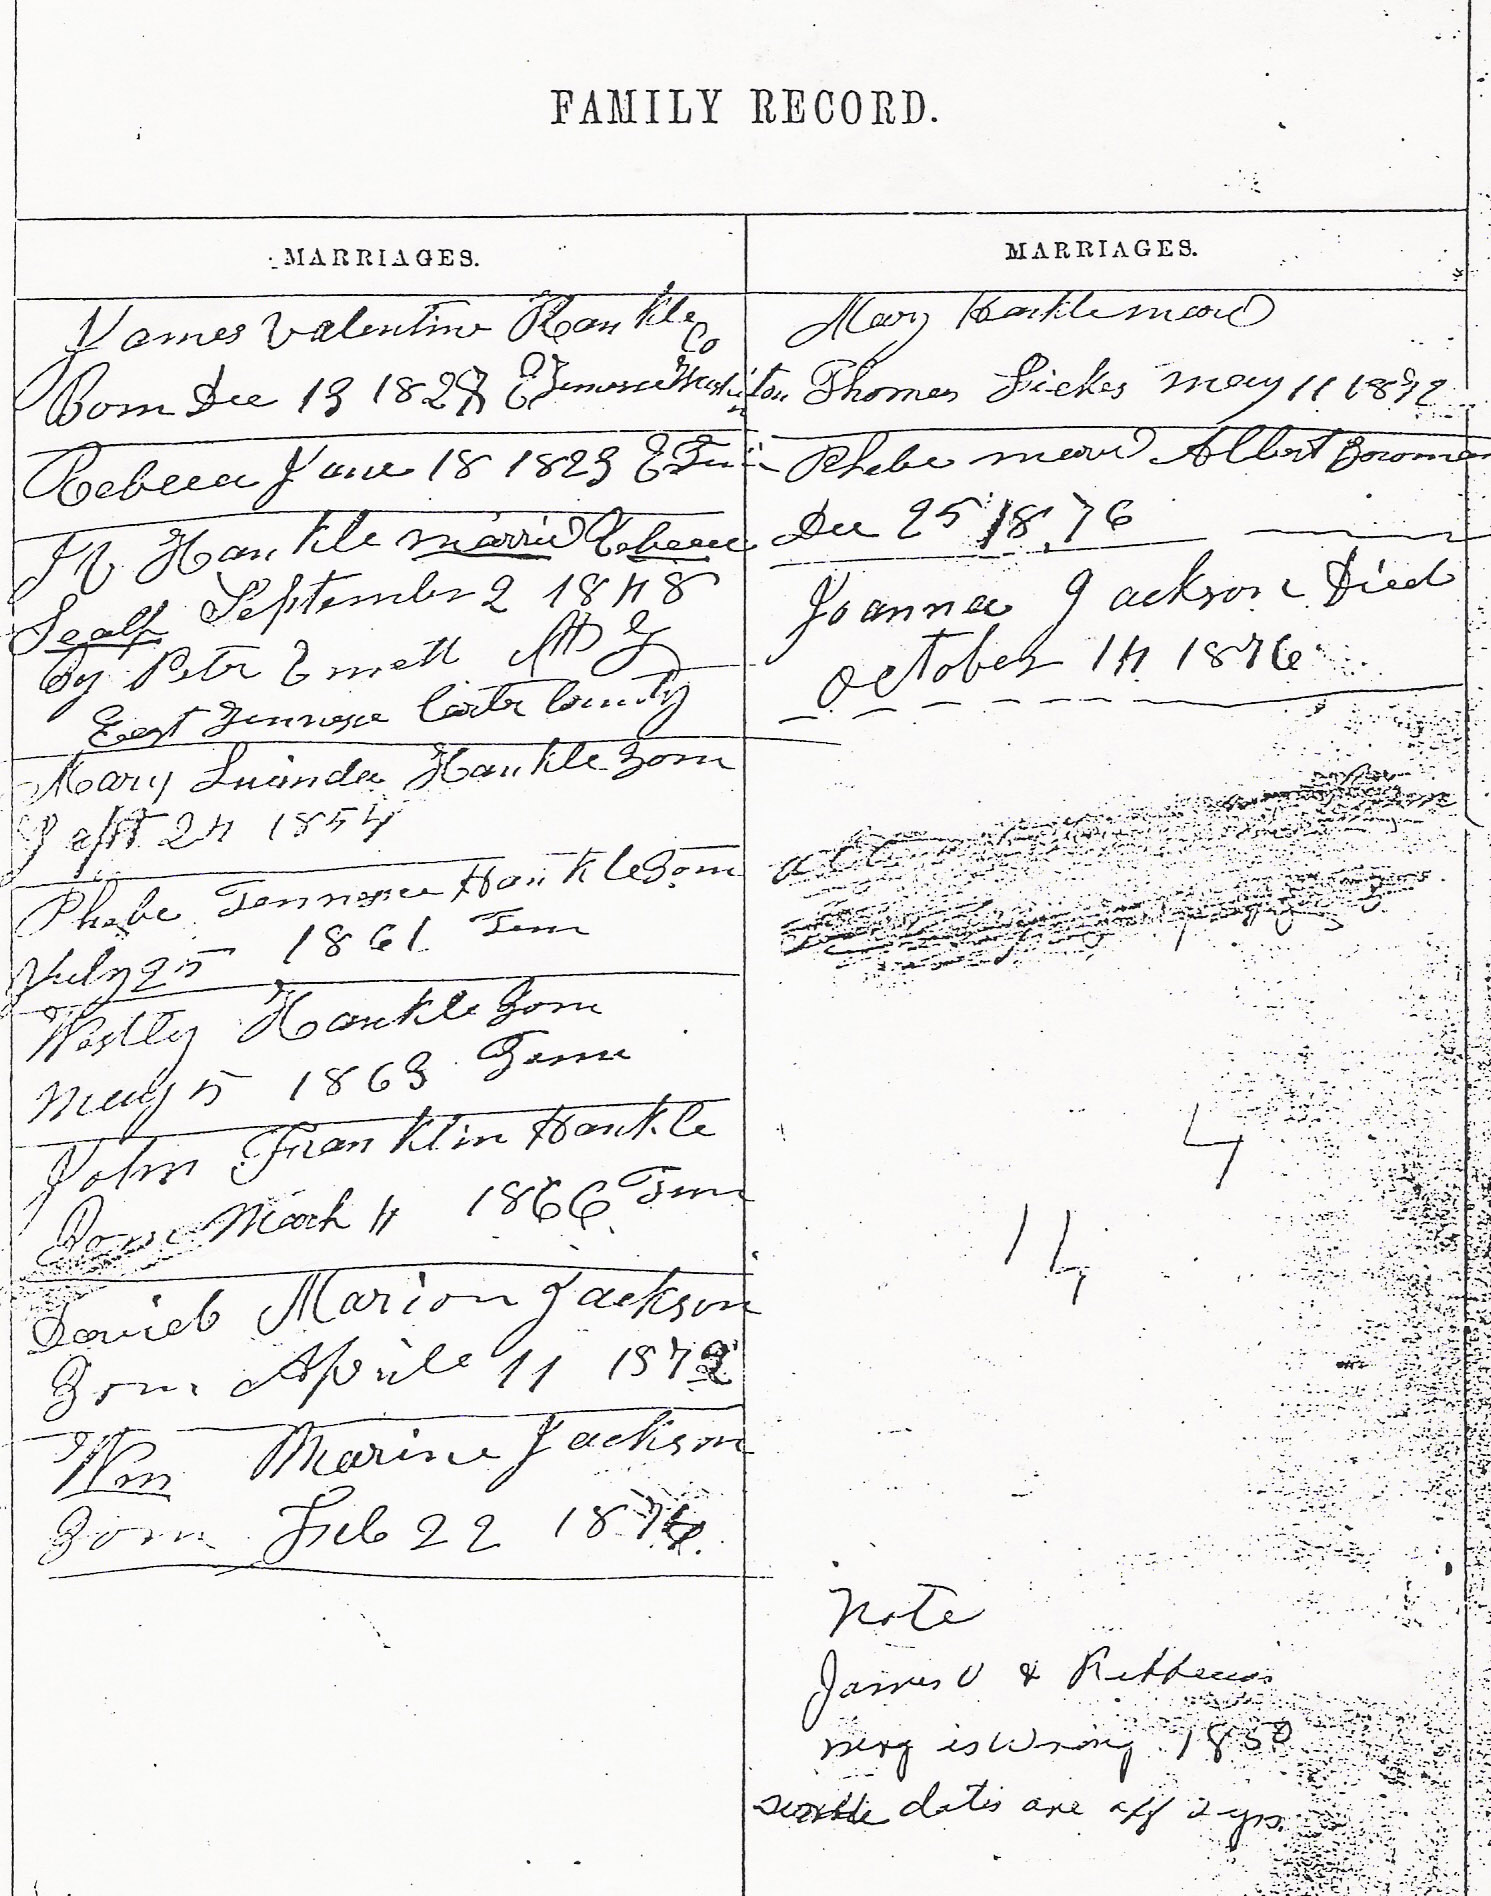 FAMILY RECORD.
MARRIAGES.
James Valentine Hankle
Born Dec 13 182 E Tennessee Washington Co
Rebecca June 18 1823 E Ten
Hankle married Rebecca
Sealf September 2 1848
by Petr Emett
East Tennessee Carter County
Mary Lucinda Hankle Born
Sept 24 1854
Phebe Tennessee Hankle Born
July 25 1861 Tenn
Westly Hankle Born
May 5 1863 Tenn
John Franklin Hankle
Born March 4 1866 Tenn
David Marion Jackson
Born Aprile 11 1872
Wm Marine Jackson
Born Feb 22 187
MARRIAGES.
Mary Hankle mard
Thomas Sickes May 11 1872
Phebe mard Albert Bowman
Dec 25 1876
Joanna Jackson Died
October 14 1876
4
14
Note
James V & Rebbecca
merg is wrong 1850
dates are off 2 yrs.